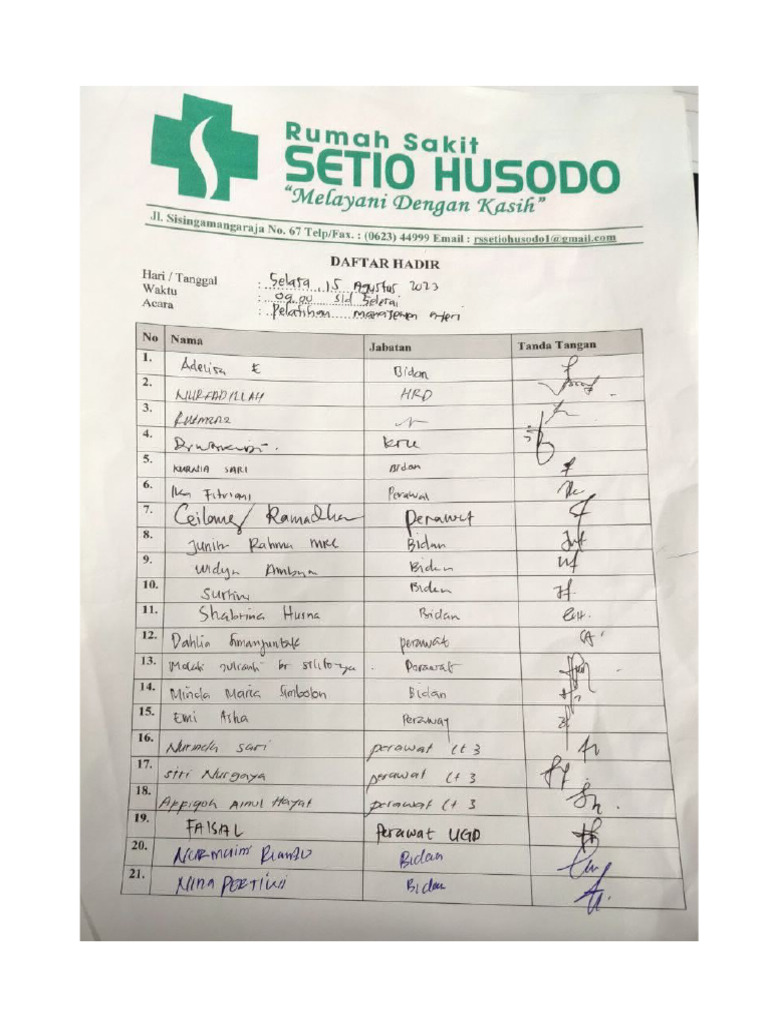 Rumah Sakit
SETIO HUSODO
"Melayani Dengan Kasih"
Jl. Sisingamangaraja No. 67 Telp/Fax. : (0623) 44999 Email : rssetiohusodo1@gmail.com
DAFTAR HADIR
Hari / Tanggal : Selasa, 15 Agustus 2023
Waktu : 09.00 s/d Selesai
Acara : Pelatihan manajemen nyeri
No Nama Jabatan Tanda Tangan
1. Adelisa E Bidan
2. NURFADILLAH HRD
3.
4.
5. KURNIA SARI Bidan
6. Ika Fitriani Perawat
7. Ramadhan perawat
8. Junita Rahma Bidan
9. Widya Bidan
10. Surtini Bidan
11. Shabrina Husna Bidan
12. Dahlia Simanjuntak perawat
13. br Perawat
14. Minda Maria Simbolon Bidan
15. Emi Asha Perawat
16. Nurinda sari perawat lt 3
17. siti Nurgaya perawat lt 3
18. Ainul Hayat perawat lt 3
19. FAISAL Perawat UGD
20. Bidan
21. NINA PERTIWI Bidan